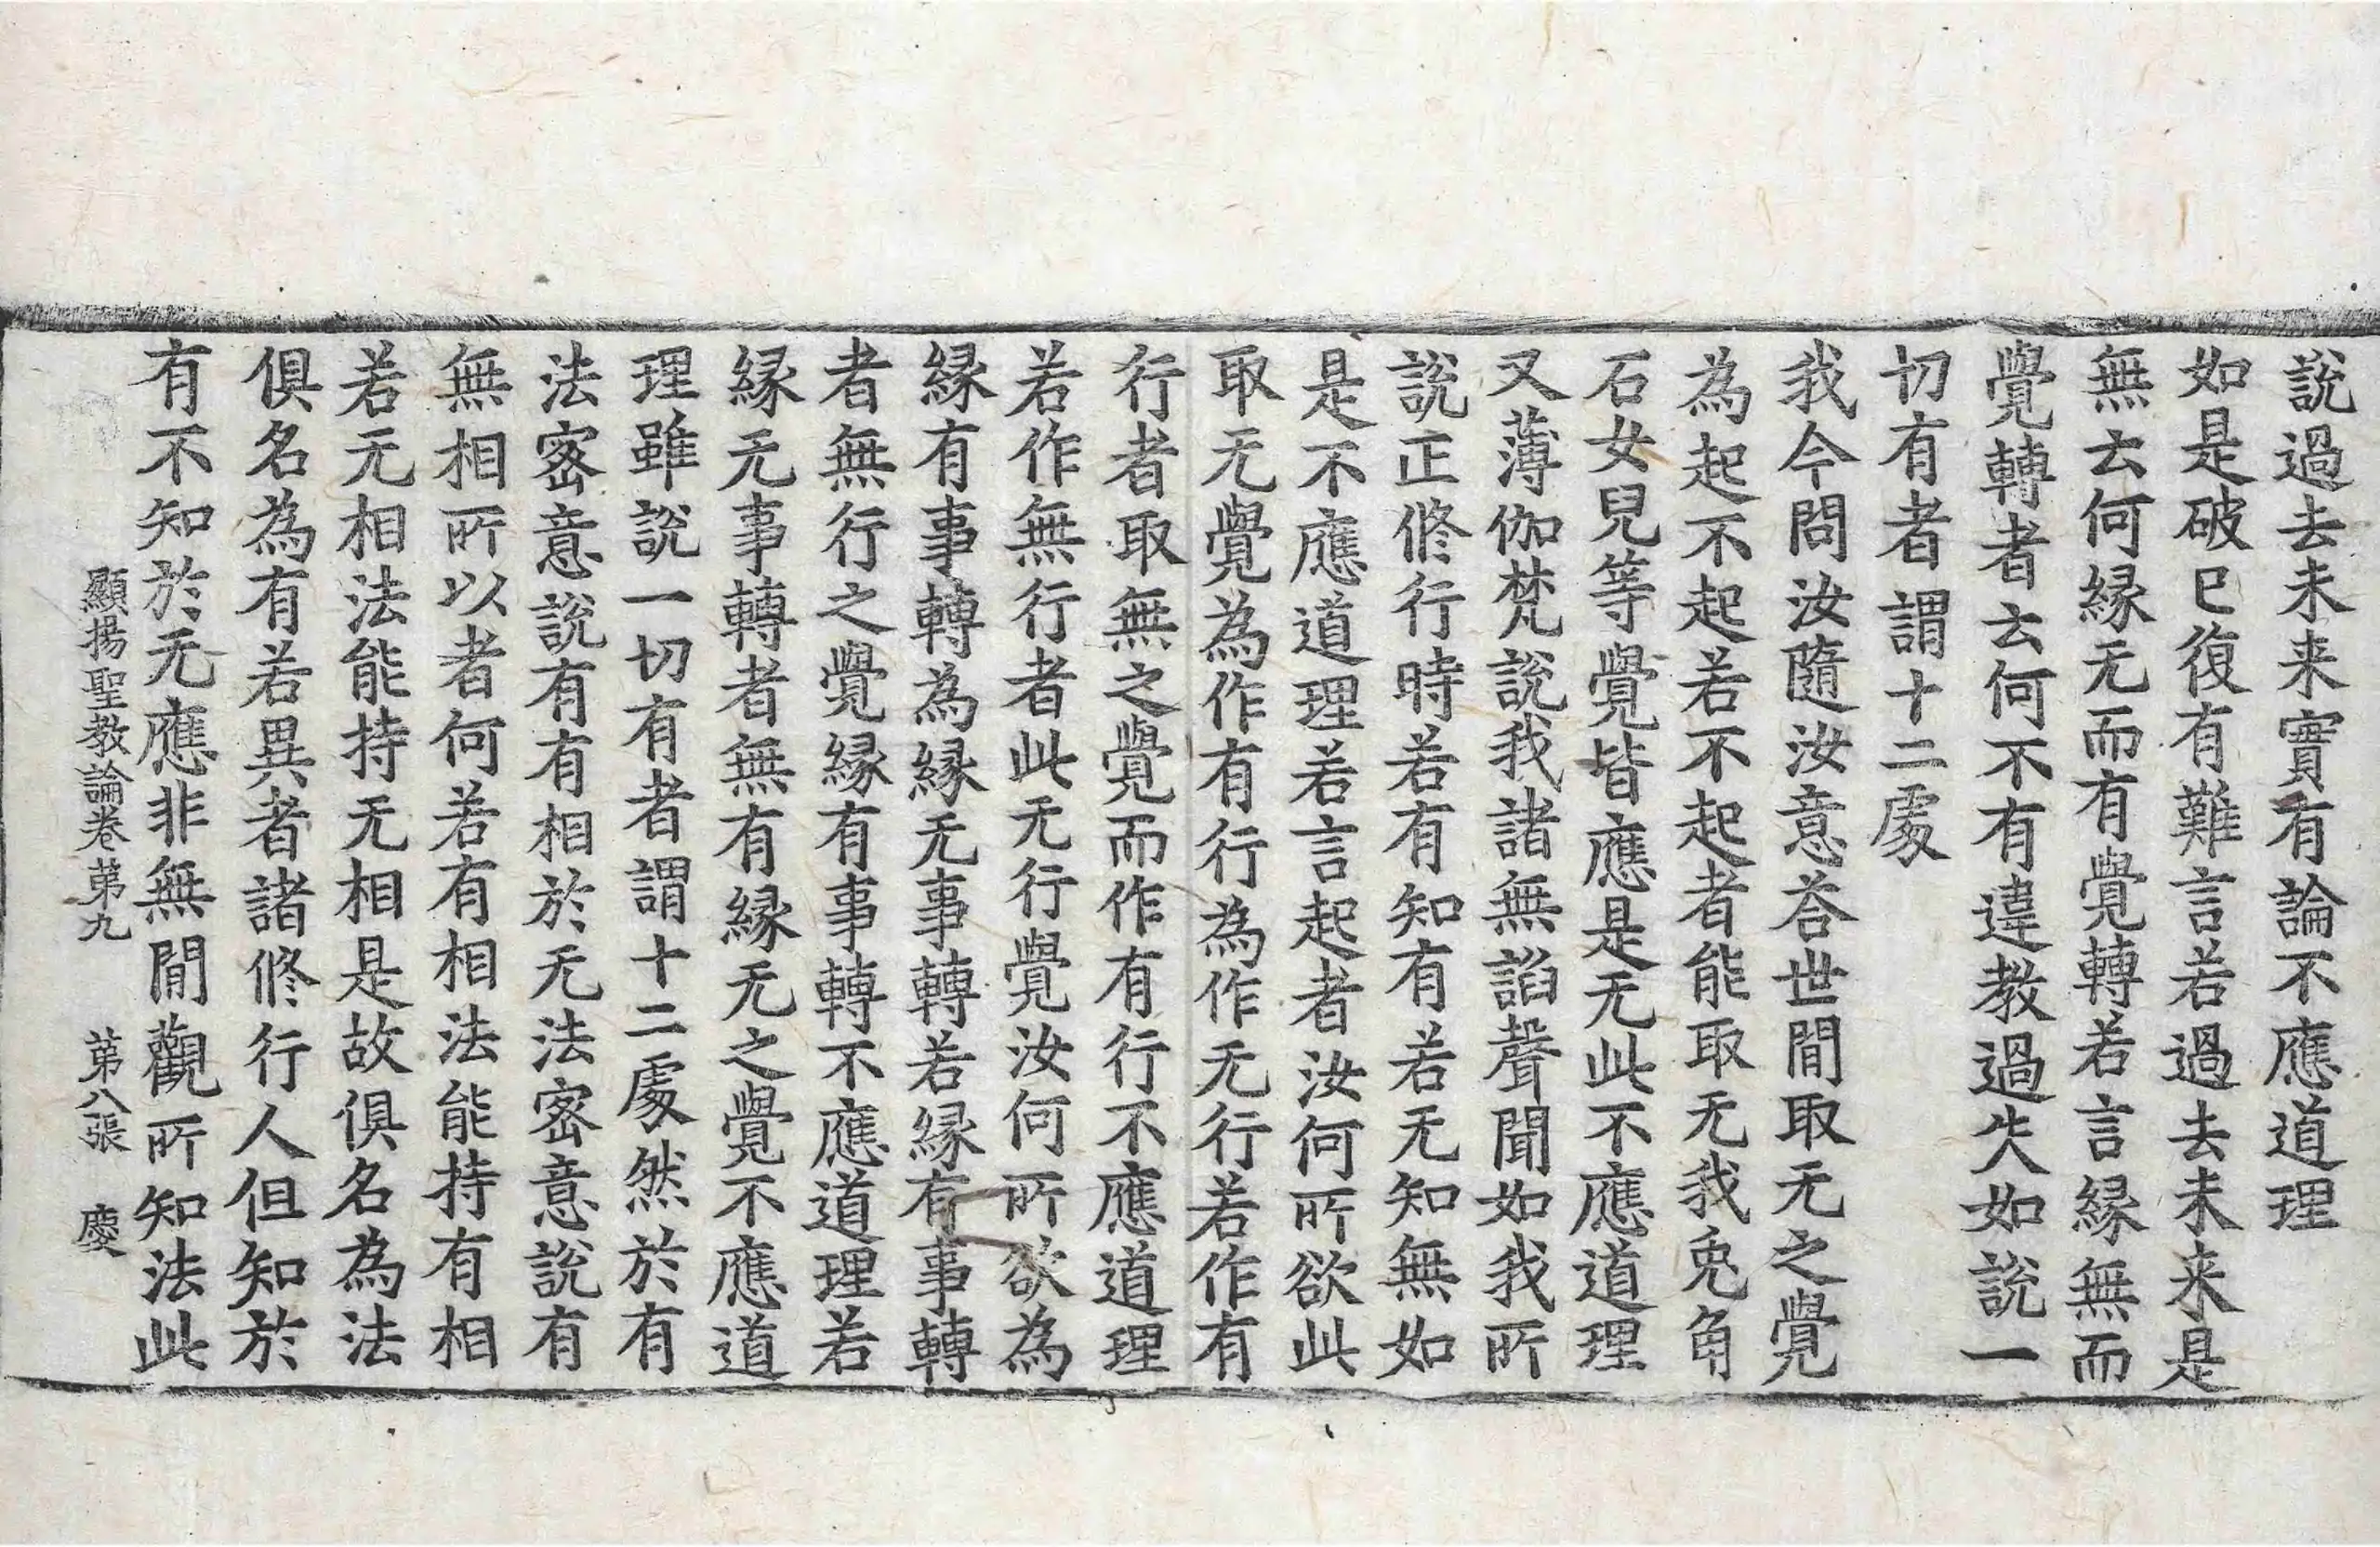 說過去未来實有論不應道理
如是破已復有難言若過去未来是
無去何緣无而有覺轉若言緣無而
覺轉者去何不有違教過失如說一
切有者謂十二處
我今問汝隨汝意荅世間取无之覺
為起不起若不起者能取无我兎角
石女兒等覺皆應是无此不應道理
又薄伽梵說我諸無諂聲聞如我所
說正修行時若有知有若无知無如
是不應道理若言起者汝何所欲此
取无覺為作有行為作无行若作有
行者取無之覺而作有行不應道理
若作無行者此无行覺汝何所欲為
緣有事轉為緣无事轉若緣有事轉
者無行之覺緣有事轉不應道理若
緣无事轉者無有緣无之覺不應道
理雖說一切有者謂十二處然於有
法密意說有有相於无法密意說有
無相所以者何若有相法能持有相
若无相法能持无相是故俱名為法
俱名為有若異者諸修行人但知於
有不知於无應非無間觀所知法此
顯揚聖教論卷苐九 苐八張 慶